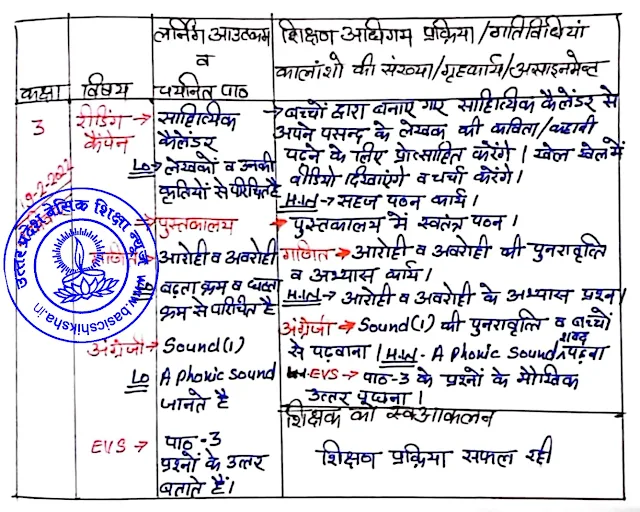 कक्षा
विषय
लर्निंग आउटकम
व
चयनित पाठ
शिक्षण अधिगम प्रक्रिया/गतिविधियां
कालांशो की संख्या/गृहकार्य/असाइनमेन्ट
3
रीडिंग →
कैंपेन
साहित्यिक
कैलेंडर
LO → लेखकों व उनकी
कृतियों से परिचित है
→ बच्चों द्वारा बनाए गए साहित्यिक कैलेंडर से
अपने पसन्द के लेखक की कविता/कहानी
पढ़ने के लिए प्रोत्साहित करेंगे। खेल खेल में
वीडियो दिखाएंगे व चर्चा करेंगे।
H.W → सहज पठन कार्य।
19-2-2022
पुस्तकालय
→ पुस्तकालय में स्वतंत्र पठन।
आरोही व अवरोही
बढ़ता क्रम व घटता
क्रम से परिचित है
गणित → आरोही व अवरोही की पुनरावृत्ति
व अभ्यास कार्य।
H.W → आरोही व अवरोही के अभ्यास प्रश्न।
अंग्रेजी → Sound(1)
LO A Phonic Sound
जानते है
अंग्रेजी → Sound(1) की पुनरावृत्ति व बच्चों
से पढ़वाना। H.W - A Phonic Sound शब्द पढ़ना
EVS → पाठ-3 के प्रश्नों के मौखिक
उत्तर पूछना।
EVS → पाठ-3
प्रश्नों के उत्तर
बताते हैं।
शिक्षक का स्वआकलन
शिक्षण प्रक्रिया सफल रही
उत्तर प्रदेश बेसिक शिक्षा न्यूज़
www.basicshiksha.in